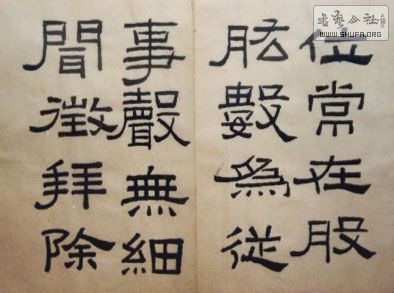 位常在股
肱數為從
事聲無細
聞徵拜除
書藝公社
WWW.SHUFA.ORG